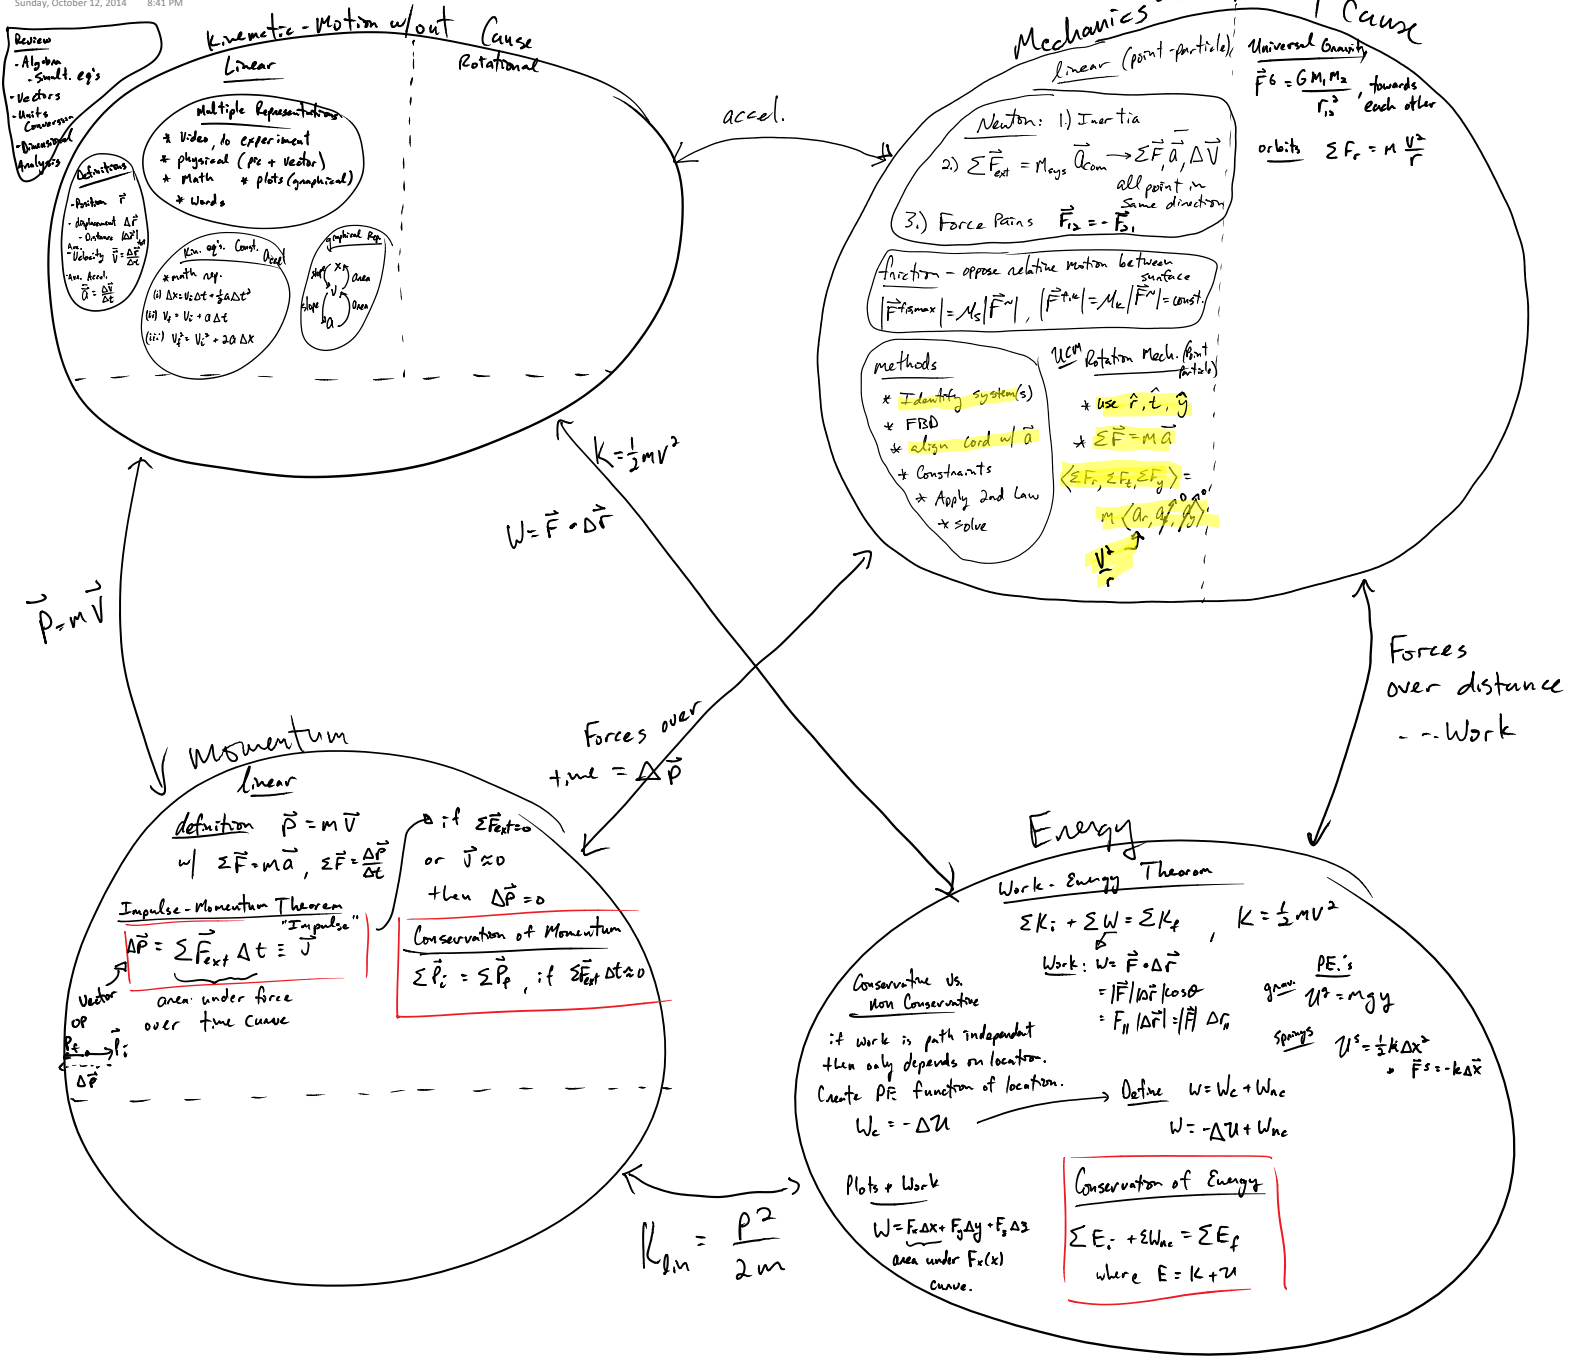 Sunday, October 12, 2014 8:41 PM
Review
- Algebra
- Simult. eq's
- Vectors
- Units
Conversion
- Dimensional
Analysis
Kinematic - Motion w/out Cause
Linear
Rotational
Multiple Representations
* Video, do experiment
* physical (pic + vector)
* Math * plots (graphical)
* Words
Definitions
- Position r⃗
- displacement Δr⃗
- Distance |Δr⃗|
- Velocity v⃗ = Δr⃗/Δt
Ave. Accel.
a⃗ = Δv⃗/Δt
Kin. eq's. Const. accel
* math rep.
(i) Δx = ViΔt + ½aΔt²
(ii) Vf = Vi + aΔt
(iii) Vf² = Vi² + 2aΔx
graphical Rep.
slope x area
v
slope area
a
accel.
Mechanics - Cause
linear (point-particle)
Newton: 1.) Inertia
2.) ΣF⃗ext = Msys a⃗com → ΣF⃗, a⃗, ΔV⃗
all point in
same direction
3.) Force Pairs F⃗12 = -F⃗21
friction - oppose relative motion between
surface
|F⃗fs,max| = μs|F⃗N|, |F⃗f,k| = μk|F⃗N| = const.
methods
* Identify system(s)
* FBD
* align cord w/ a⃗
* Constraints
* Apply 2nd Law
* solve
UCM Rotation Mech. (point
particle)
* use r̂, t̂, ŷ
* ΣF⃗ = ma⃗
⟨ΣFr, ΣFt, ΣFy⟩ =
m⟨ar, at⁰, ay⁰⟩
V²/r
Universal Gravity
F⃗G = GM1M2/r12², towards
each other
orbits ΣFr = m V²/r
K = ½mv²
W = F⃗ • Δr⃗
P⃗ = mV⃗
Forces over
time = ΔP⃗
Forces
over distance
--- Work
Momentum
linear
definition P⃗ = mV⃗
w/ ΣF⃗ = ma⃗, ΣF⃗ = ΔP⃗/Δt
Impulse-Momentum Theorem
"Impulse"
ΔP⃗ = ΣF⃗ext Δt ≡ J⃗
area under force
over time curve
vector
op
Pf Pi
ΔP⃗
if ΣF⃗ext = 0
or J⃗ ≈ 0
then ΔP⃗ = 0
Conservation of Momentum
ΣP⃗i = ΣP⃗f, if ΣF⃗extΔt ≈ 0
Klin = P²/2m
Energy
Work-Energy Theorem
ΣKi + ΣW = ΣKf, K = ½mv²
Work: W = F⃗ • Δr⃗
= |F⃗||Δr⃗|cosθ
= F∥|Δr⃗| = |F⃗| Δr∥
PE.'s
grav. Ug = mgy
springs Us = ½kΔx²
F⃗s = -kΔx⃗
Conservative vs.
non Conservative
if work is path independant
then only depends on location.
Create PE function of location.
Wc = -ΔU
Define W = Wc + Wnc
W = -ΔU + Wnc
Plots + Work
W = FxΔx + FyΔy + FzΔz
area under Fx(x)
curve.
Conservation of Energy
ΣEi + ΣWnc = ΣEf
where E = K + U